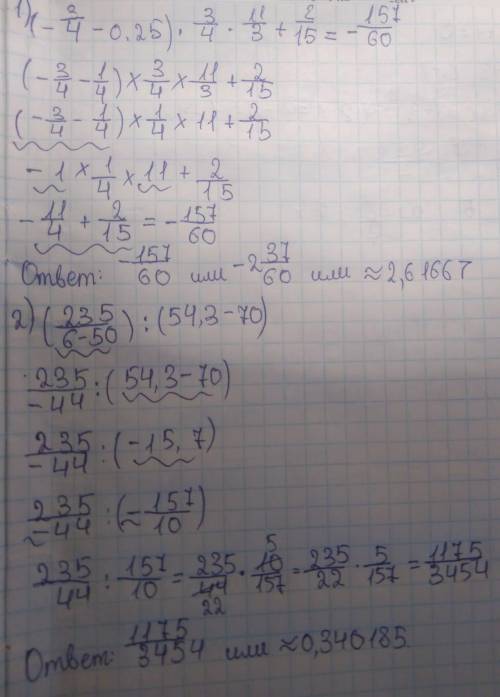 1) (-3/4 - 0.25) · 3/4 · 11/3 + 2/15 = -157/60
(-3/4 - 1/4) × 3/4 × 11/3 + 2/15
(-3/4 - 1/4) × 1/4 × 11 + 2/15
-1 × 1/4 × 11 + 2/15
-11/4 + 2/15 = -157/60
Ответ: -157/60 или -2 37/60 или ≈ 2,61667
2) (235/6-50) : (54,3-70)
235/-44 : (54,3-70)
235/-44 : (-15,7)
235/-44 : (-157/10)
235/44 : 157/10 = 235/44 22 · 5 10/157 = 235/22 · 5/157 = 1175/3454
Ответ: 1175/3454 или ≈ 0,340185.